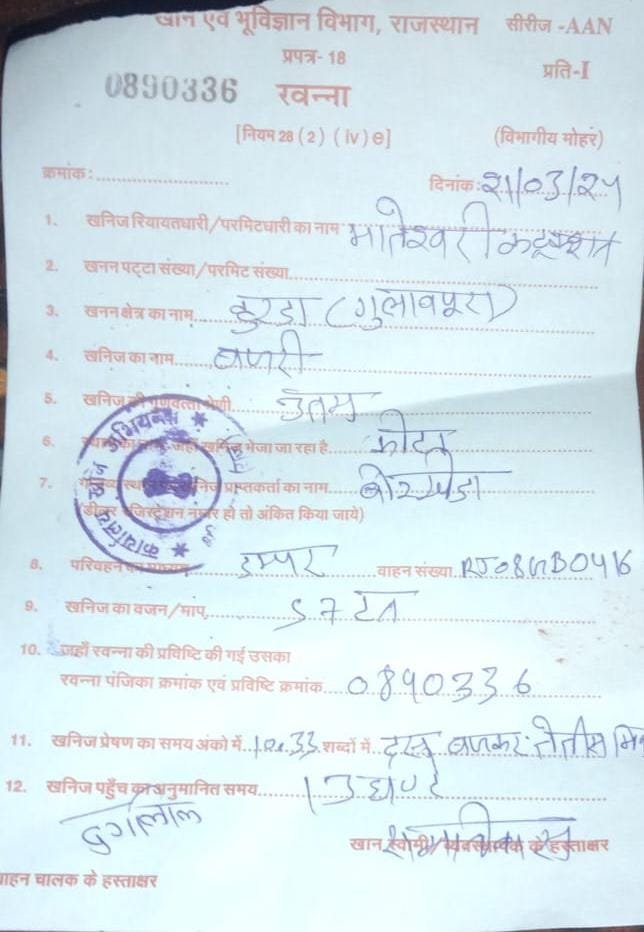 खान एवं भूविज्ञान विभाग, राजस्थान सीरीज -AAN
प्रपत्र- 18
प्रति-I
0890336 रवन्ना
[नियम 28 (2) ( iv) e] (विभागीय मोहर)
क्रमांक :
दिनांक: 21/03/24
1. खनिज रियायतधारी/परमिटधारी का नाम मातेश्वरी
2. खनन पट्टा संख्या/परमिट संख्या
3. खननक्षेत्र का नाम हुरडा (गुलाबपूरा)
4. खनिज का नाम बजरी
5. खनिज की गुणवत्ता श्रेणी उतम
6. स्थान का नाम जहाँ खनिज भेजा जा रहा है
7. गन्तव्य स्थान एवं खनिज प्राप्तकर्ता का नाम बोरखेडा
(डीलर रजिस्ट्रेशन नम्बर हो तो अंकित किया जाये)
8. परिवहन का माध्यम डम्पर वाहन संख्या RJ08GB0416
9. खनिज का वजन/माप 57 टन
10. जहाँ रवन्ना की प्रविष्टि की गई उसका
रवन्ना पंजिका क्रमांक एवं प्रविष्टि क्रमांक 0890336
11. खनिज प्रेषण का समय अंको में 10.33 शब्दों में दस बजकर तेतीस
12. खनिज पहुँच का अनुमानित समय 13 घण्टे
दुर्गालाल
खान स्वामी/ के हस्ताक्षर
वाहन चालक के हस्ताक्षर